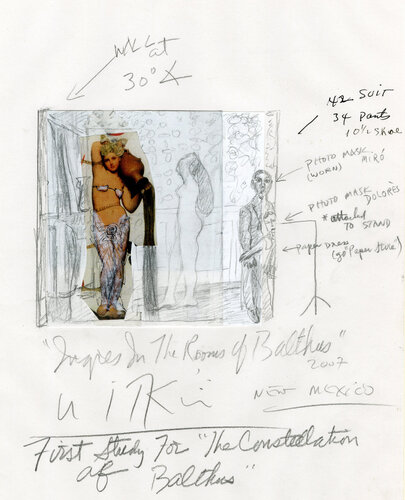 WALL at
30°
42 Suit
34 Pants
10½ Shoe
PHOTO MASK MIRÓ
(WORN)
PHOTO MASK DOLORÈS
*attached
TO STAND
paper dress
(go "Paper Store")
"Ingres In The Rooms of Balthus"
2007
WITKIN
NEW MEXICO
First Study For "The Constellation
of Balthus"